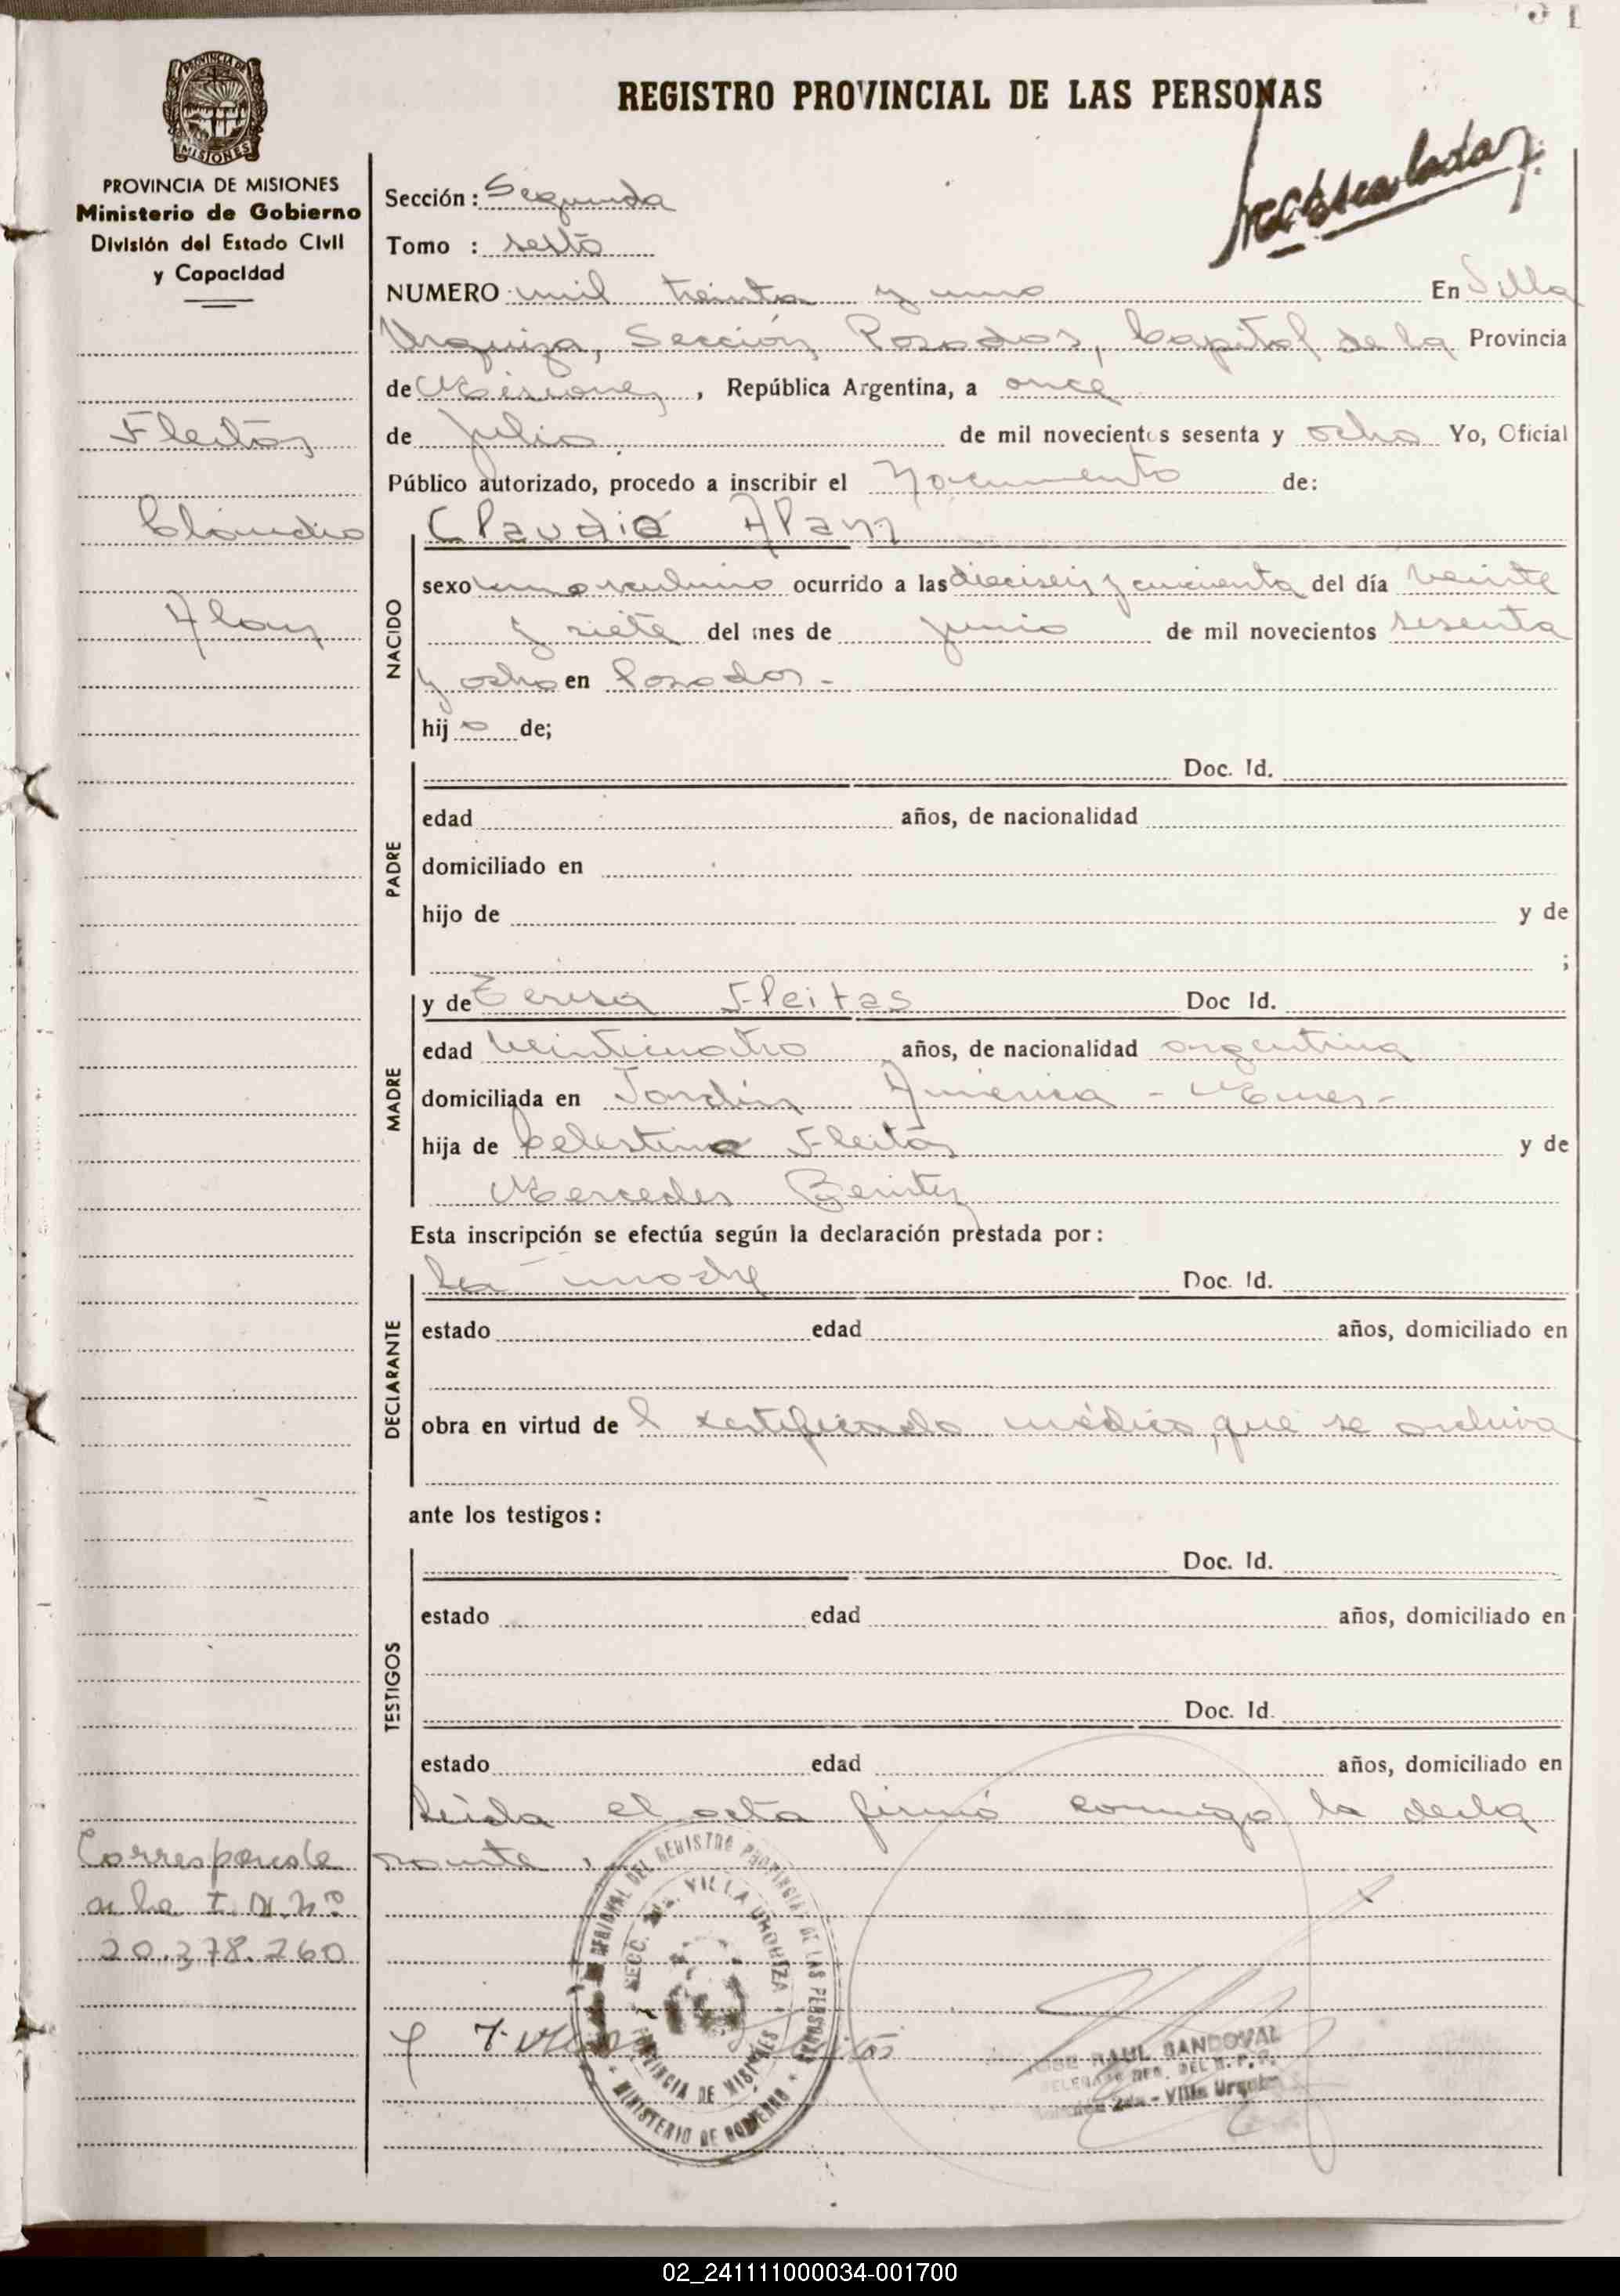 REGISTRO PROVINCIAL DE LAS PERSONAS
MISIONES
PROVINCIA DE MISIONES
Ministerio de Gobierno
División del Estado Civil
y Capacidad
Sección: Segunda
Tomo : sexto
NUMERO mil treinta y uno En Villa
Urquiza, Sección Posadas, Capital de la Provincia
de Misiones, República Argentina, a once
Fleitas
de julio de mil novecientos sesenta y ocho Yo, Oficial
Público autorizado, procedo a inscribir el Nacimiento de:
Claudio
Claudio Alan
NACIDO
sexo masculino ocurrido a las dieciseis y cincuenta del día veinte
Alan
y siete del mes de junio de mil novecientos sesenta
y ocho en Posadas.-
hij o de;
PADRE
Doc. Id.
edad años, de nacionalidad
domiciliado en
hijo de y de
;
MADRE
y de Teresa Fleitas Doc Id.
edad veinticuatro años, de nacionalidad argentina
domiciliada en Jardín América - Mnes-
hija de Celestino Fleitas y de
Mercedes Benitez
Esta inscripción se efectúa según la declaración prestada por:
DECLARANTE
La madre Doc. Id.
estado edad años, domiciliado en
obra en virtud de l certificado médico que se archiva
ante los testigos:
TESTIGOS
Doc. Id.
estado edad años, domiciliado en
Doc. Id.
estado edad años, domiciliado en
Leida el acta firmó conmigo la decla
Corresponde rante.
a la
20.378.260
REGISTRO PROVINCIAL DE LAS PERSONAS
SECC. 2da. VILLA URQUIZA
PROVINCIA DE MISIONES
MINISTERIO DE GOBIERNO
JOSE RAUL SANDOVAL
2da - Villa Urquiza
02_241111000034-001700